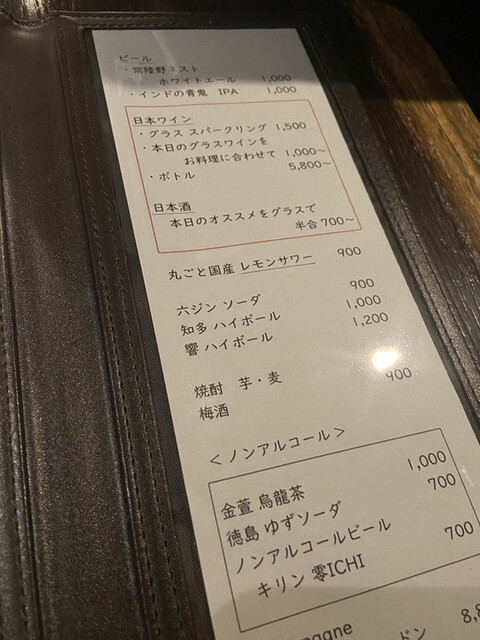 ビール
・常陸野ネスト
ホワイトエール 1,000
・インドの青鬼 IPA 1,000
日本ワイン
・グラス スパークリング 1,500
・本日のグラスワインを
お料理に合わせて 1,000~
・ボトル 5,800~
日本酒
本日のオススメをグラスで
半合 700~
丸ごと国産 レモンサワー 900
六ジン ソーダ 900
知多 ハイボール 1,000
響 ハイボール 1,200
焼酎 芋・麦 900
梅酒
<ノンアルコール>
金萱 烏龍茶 1,000
徳島 ゆずソーダ 700
ノンアルコールビール
キリン 零ICHI 700
agne
ドン 8,8